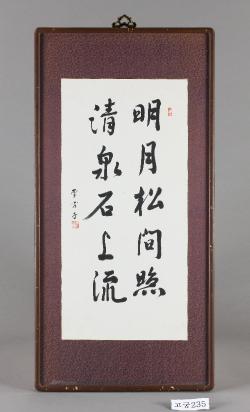 明月松間照
清泉石上流
고궁235